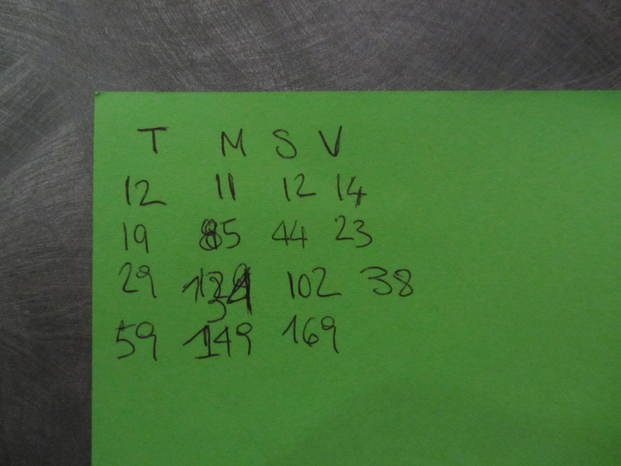 T M S V
12 11 12 14
19 85 44 23
29 102 38
59 149 169